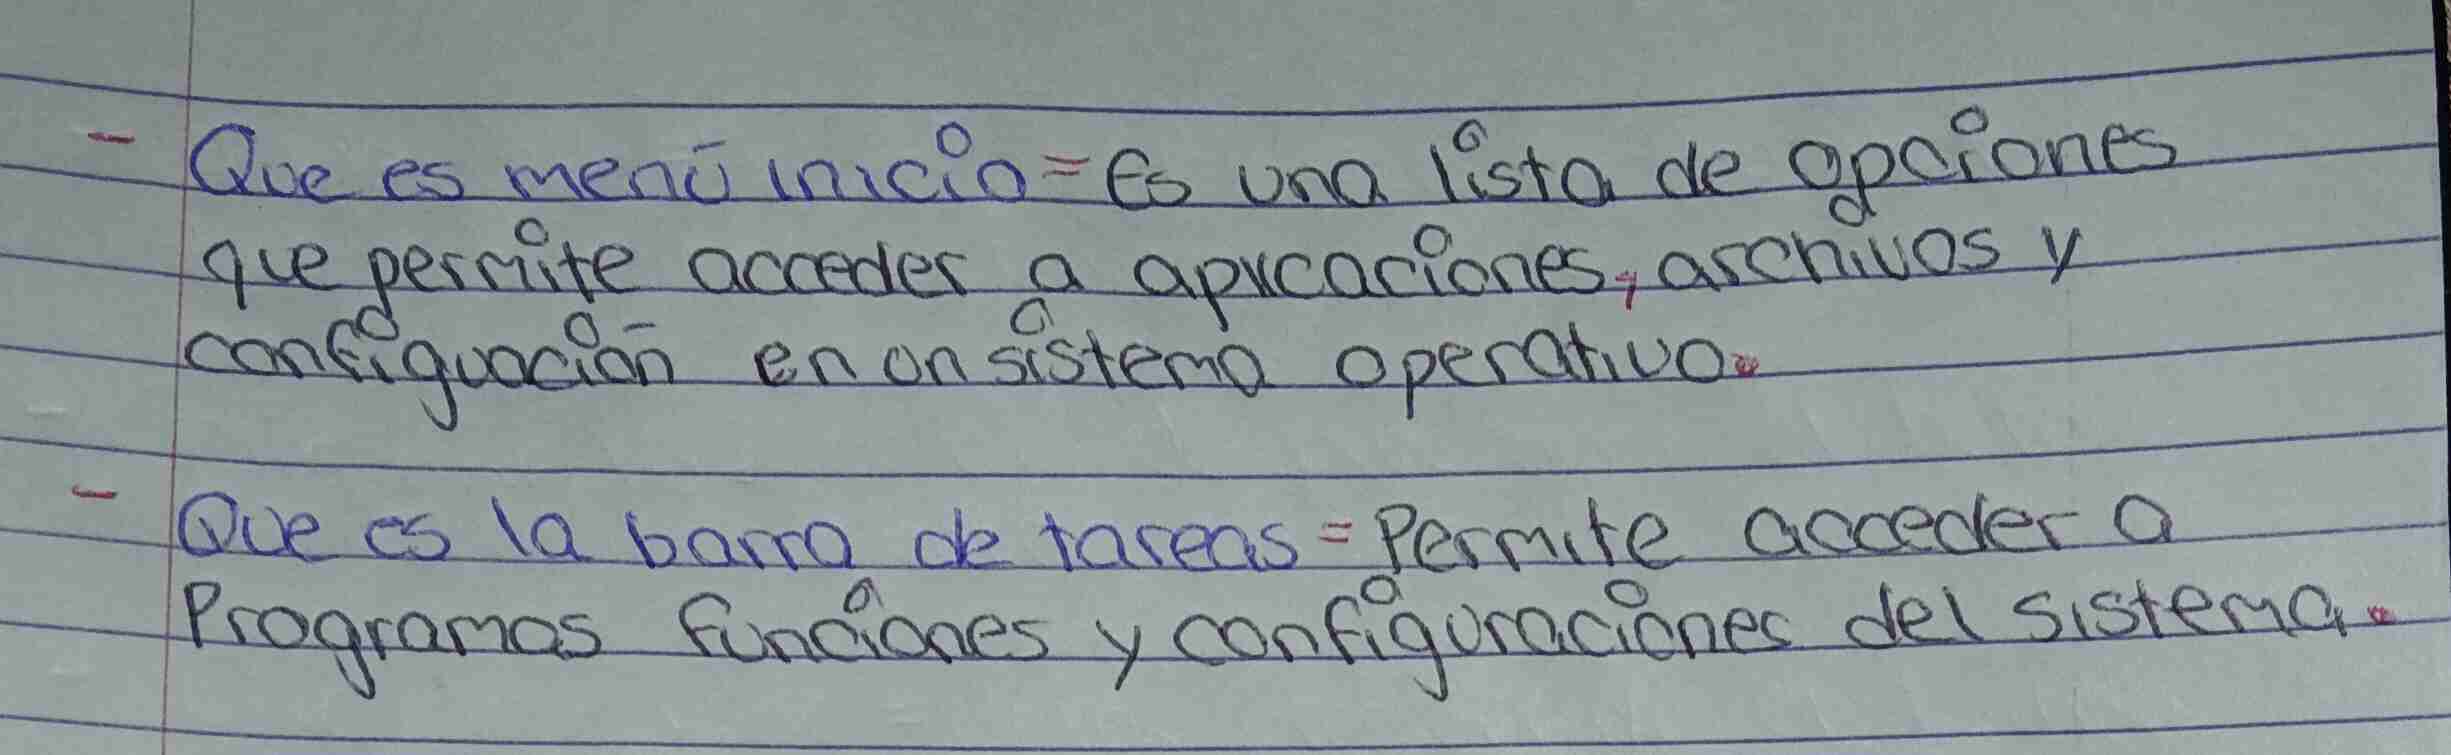 - Que es menú inicio = Es una lista de opciones
que permite acceder a apicaciones, archivos y
configuación en un sistema operativo.
- Que es la barra de tareas = Permite acceder a
Programas funciones y configuraciones del sistema.